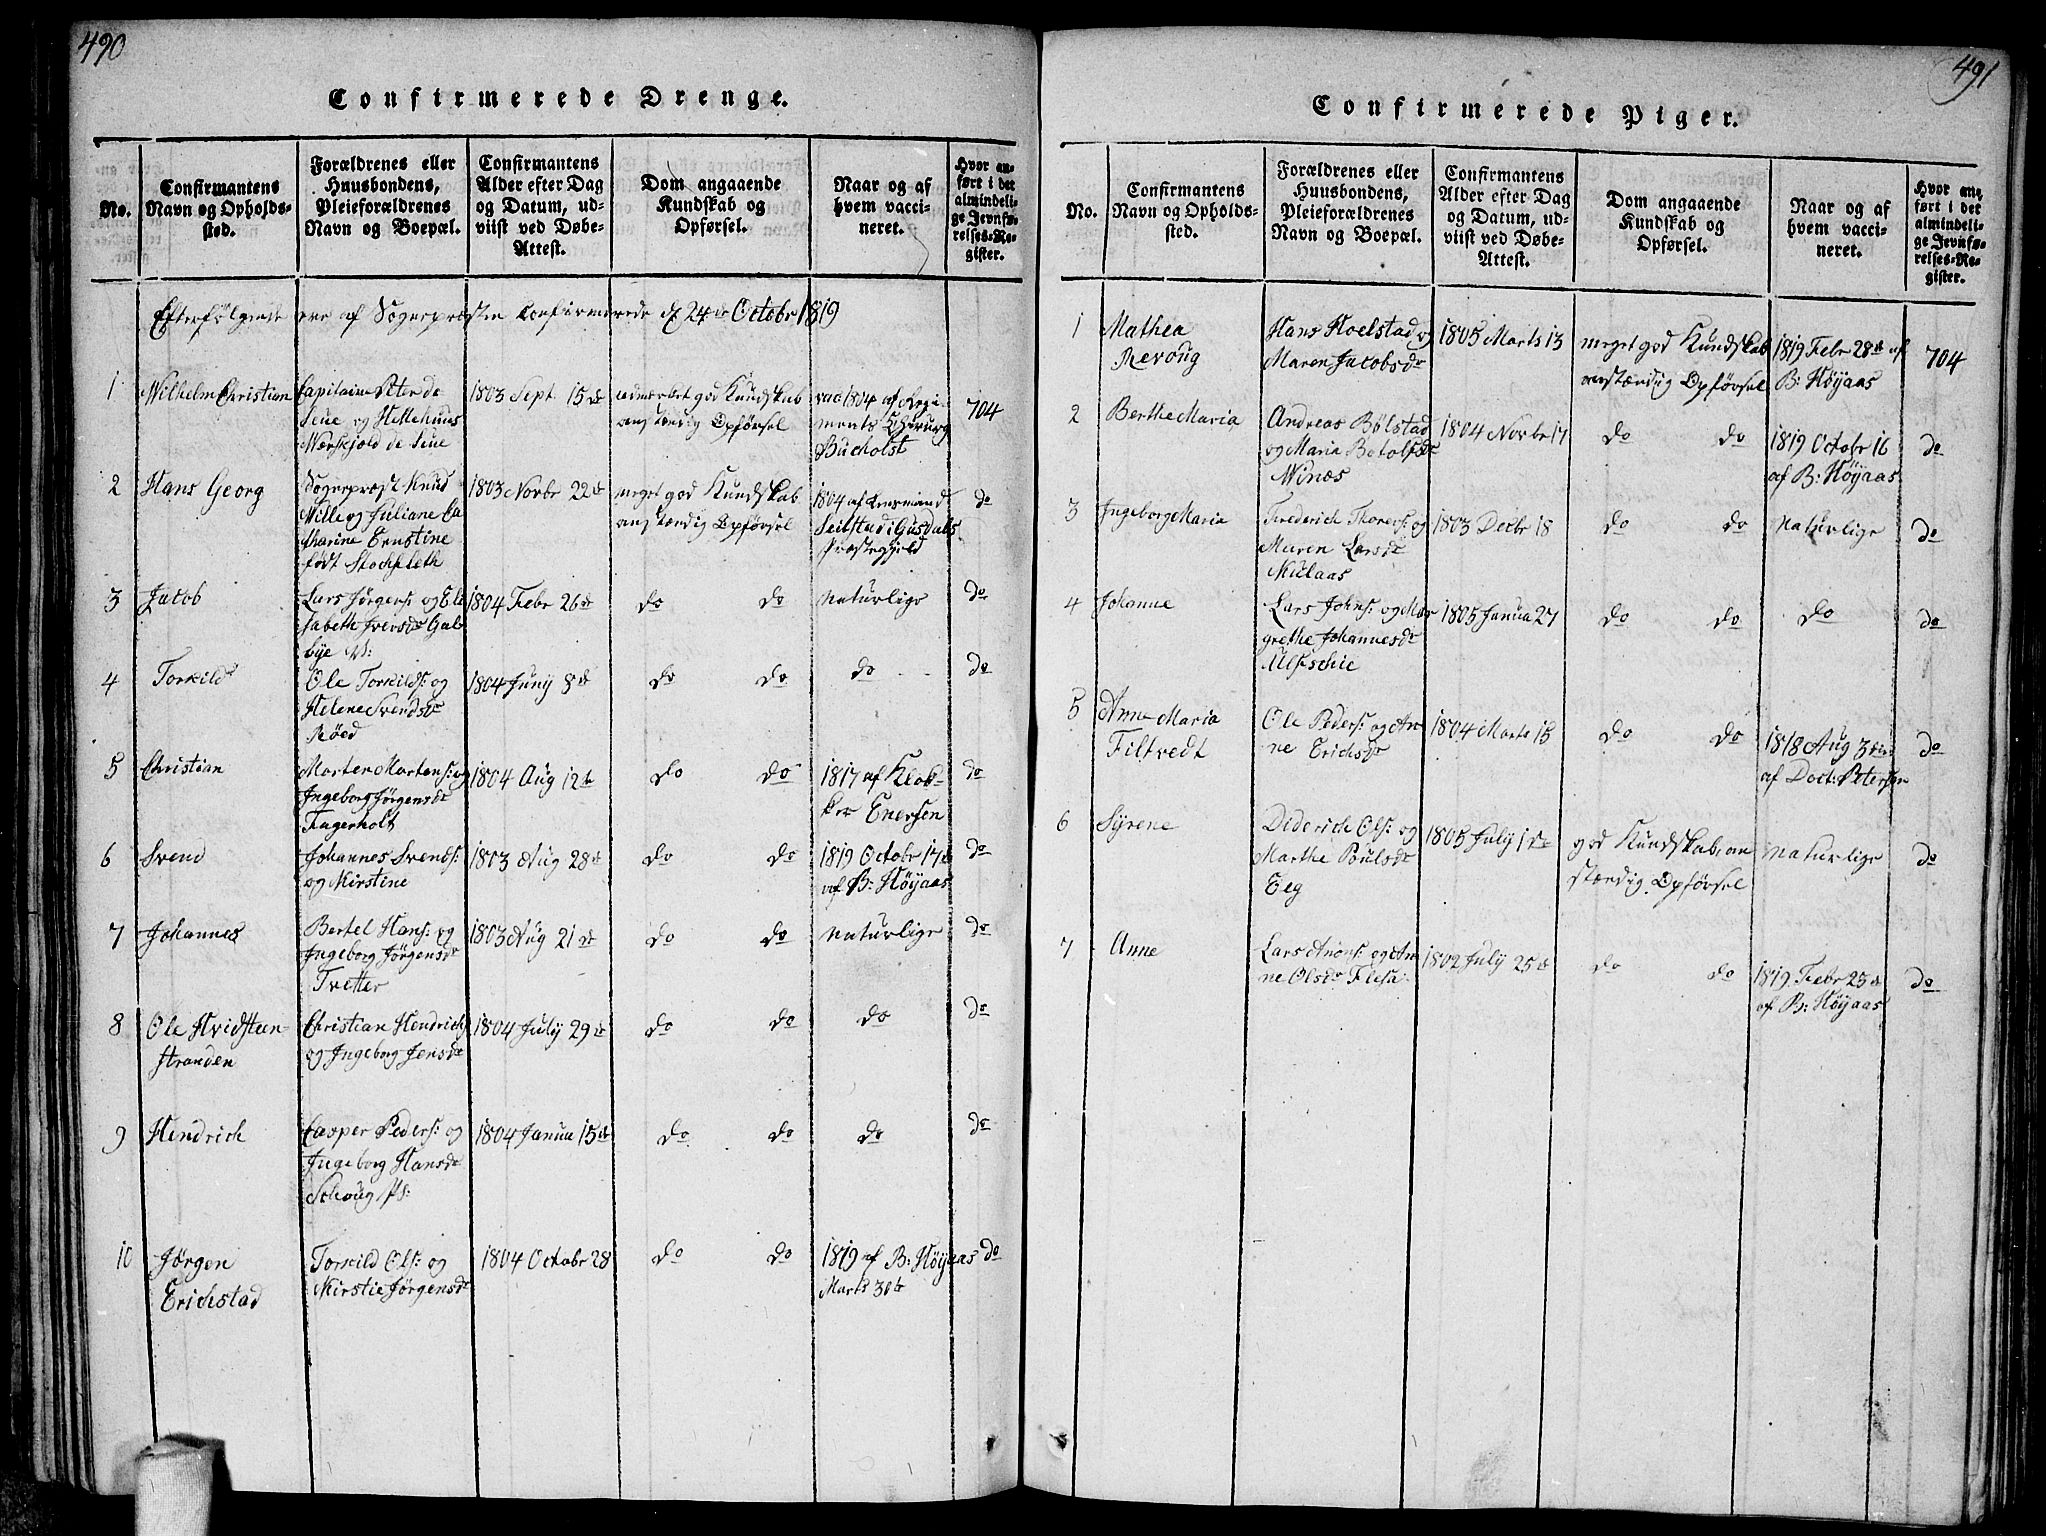 490
Confirmerede Drenge.
No.
Confirmantens
Navn og Opholds-
sted.
Forældrenes eller
Huusbondens,
Pleieforældrenes
Navn og Boepæl.
Confirmantens
Alder efter Dag
og Datum, ud-
viist ved Døbe-
Attest.
Dom angaaende
Kundskab og
Opførsel.
Naar og af
hvem vacci-
neret.
Hvor an-
ført i det
almindeli-
ge Jevnfø-
relses-Re-
gister.
Efterfölgende ere af Sognepræsten Confirmerede d 24de Octobr 1819
1
Wilhelm Christian
Capitaine Peter de
Seue og
Werskjold de Seue
1803 Sept 15de
udmærket god Kundskab
anstændig Opførsel
1804 af Regi-
ments Chirurg
Bucholst
704
2
Hans Georg
Sognepræst Knud
Wille og Juliane Ca
tharine Ernstine
født Stockfleth
1803 Novbr 22de
meget god Kundskab
anstændig Opførsel
1804 af Lensmand
Seilstad i Gusdals
Præstegjeld
do
3
Jacob
Lars Jørgens: og Eli
sabeth Iversdr Gal
bye
1804 Febr 26de
do do
naturlige
do
4
Torkild
Ole Torkilds: og
Helene Svendsdr
Röed
1804 Juny 8de
do do
do
do
5
Christian
Morten Mortens: og
Ingeborg Jørgensdr
Fagerholt
1804 Aug 12te
do do
1817 af Klok-
ker Enersen
do
6
Svend
Johannes Svends:
og Kirstine
1803 Aug 28de
do do
1819 Octobr 17de
af B: Höyaas
do
7
Johannes
Bertel Hans: og
Ingeborg Jörgensdr
Tvetter
1803 Aug 21de
do do
naturlige
do
8
Ole Hvidsteen-
stranden
Christian Hendrichs
og Ingeborg Jensdr
1804 July 29de
do do
do
do
9
Hendrich
Casper Peders: og
Ingeborg Hansdr
Schoug Ps:
1804 Janua 15de
do do
do
do
10
Jørgen
Erichstad
Torkild Ols: og
Kirstie Jørgensdr
1804 Octobr 28
do do
1819 af B: Höyaas
Marts 30te
do
491
Confirmerede Piger.
No.
Confirmantens
Navn og Opholds-
sted.
Forældrenes eller
Huusbondens,
Pleieforældrenes
Navn og Boepæl.
Confirmantens
Alder efter Dag
og Datum, ud-
viist ved Døbe-
Attest.
Dom angaaende
Kundskab og
Opførsel.
Naar og af
hvem vacci-
neret.
Hvor an-
ført i det
almindeli-
ge Jevnfø-
relses-Re-
gister.
1
Mathea
Revoug
Hans Hoelstad og
Maren Jacobsdr
1805 Marts 13
meget god Kundskab
anstændig Opførsel
1819 Febr 28de af
B: Höyaas
704
2
Berthe Maria
Andreas Bølstad
og Maria Botolfsdr
Winæs
1804 Novbr 17
do do
1819 Octobr 16
af B: Höyaas
do
3
Ingeborg Maria
Frederich Thorers: og
Maren Larsdr
Niclaas
1803 Decbr 18
do do
naturlige
do
4
Johanne
Lars Johns: og Mar
grethe Johannesdr
Ulfschie
1805 Janua 27
do do
do
do
5
Anne Maria
Filtvedt
Ole Peders: og An
ne Erichsdr
1804 Marts 15
do do
1818 Aug 3die
af Doct: Petersen
do
6
Syrene
Diderich Ols: og
Marthe Poulsdr
Eeg
1805 July 1de
god Kundskab, an
stændig Opførsel
naturlige
do
7
Anne
Lars Arons: og An
ne Olsdr Flesk
1802 July 25de
do do
1819 Febr 25de
af B: Höyaas
do